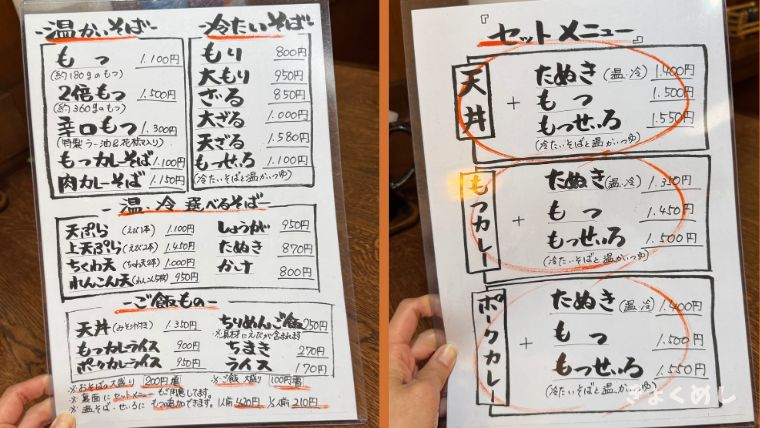 温かいそば
もつ 1.100円
(約180gのもつ)
2倍もつ 1.500円
(約360gのもつ)
辛口もつ 1.300円
(特製ラー油&花椒入り)
もつカレーそば 1.100円
肉カレーそば 1.150円
冷たいそば
もり 800円
大もり 950円
ざる 850円
大ざる 1.000円
天ざる 1.580円
もつせいろ 1.100円
(冷たいそばと温かいつゆ)
温・冷 選べるそば
天ぷら (えび1本) 1.100円
上天ぷら (えび2本) 1.450円
ちくわ天 (ちくわ天2本) 1.000円
れんこん天 (れんこん5枚) 950円
しょうが 950円
たぬき 870円
かけ 800円
ご飯もの
天丼 (みそ汁付き) 1.350円
もつカレーライス 900円
ポークカレーライス 950円
ちりめんご飯 250円
※具材にえびが含まれます
ちまき 270円
ライス 170円
※おそばの大盛り 200円増
※ご飯 大盛り 100円増
※裏面にセットメニューもご用意してます。
※温そば、せいろにもつ追加できます。 1人前 420円 1/2人前 210円
『セットメニュー』
天丼
+
たぬき (温・冷) 1.400円
もつ 1.500円
もつせいろ 1.550円
(冷たいそばと温かいつゆ)
もつカレー
+
たぬき (温・冷) 1.350円
もつ 1.450円
もつせいろ 1.500円
(冷たいそばと温かいつゆ)
ポークカレー
+
たぬき (温・冷) 1.400円
もつ 1.500円
もつせいろ 1.550円
(冷たいそばと温かいつゆ)
きょくめし